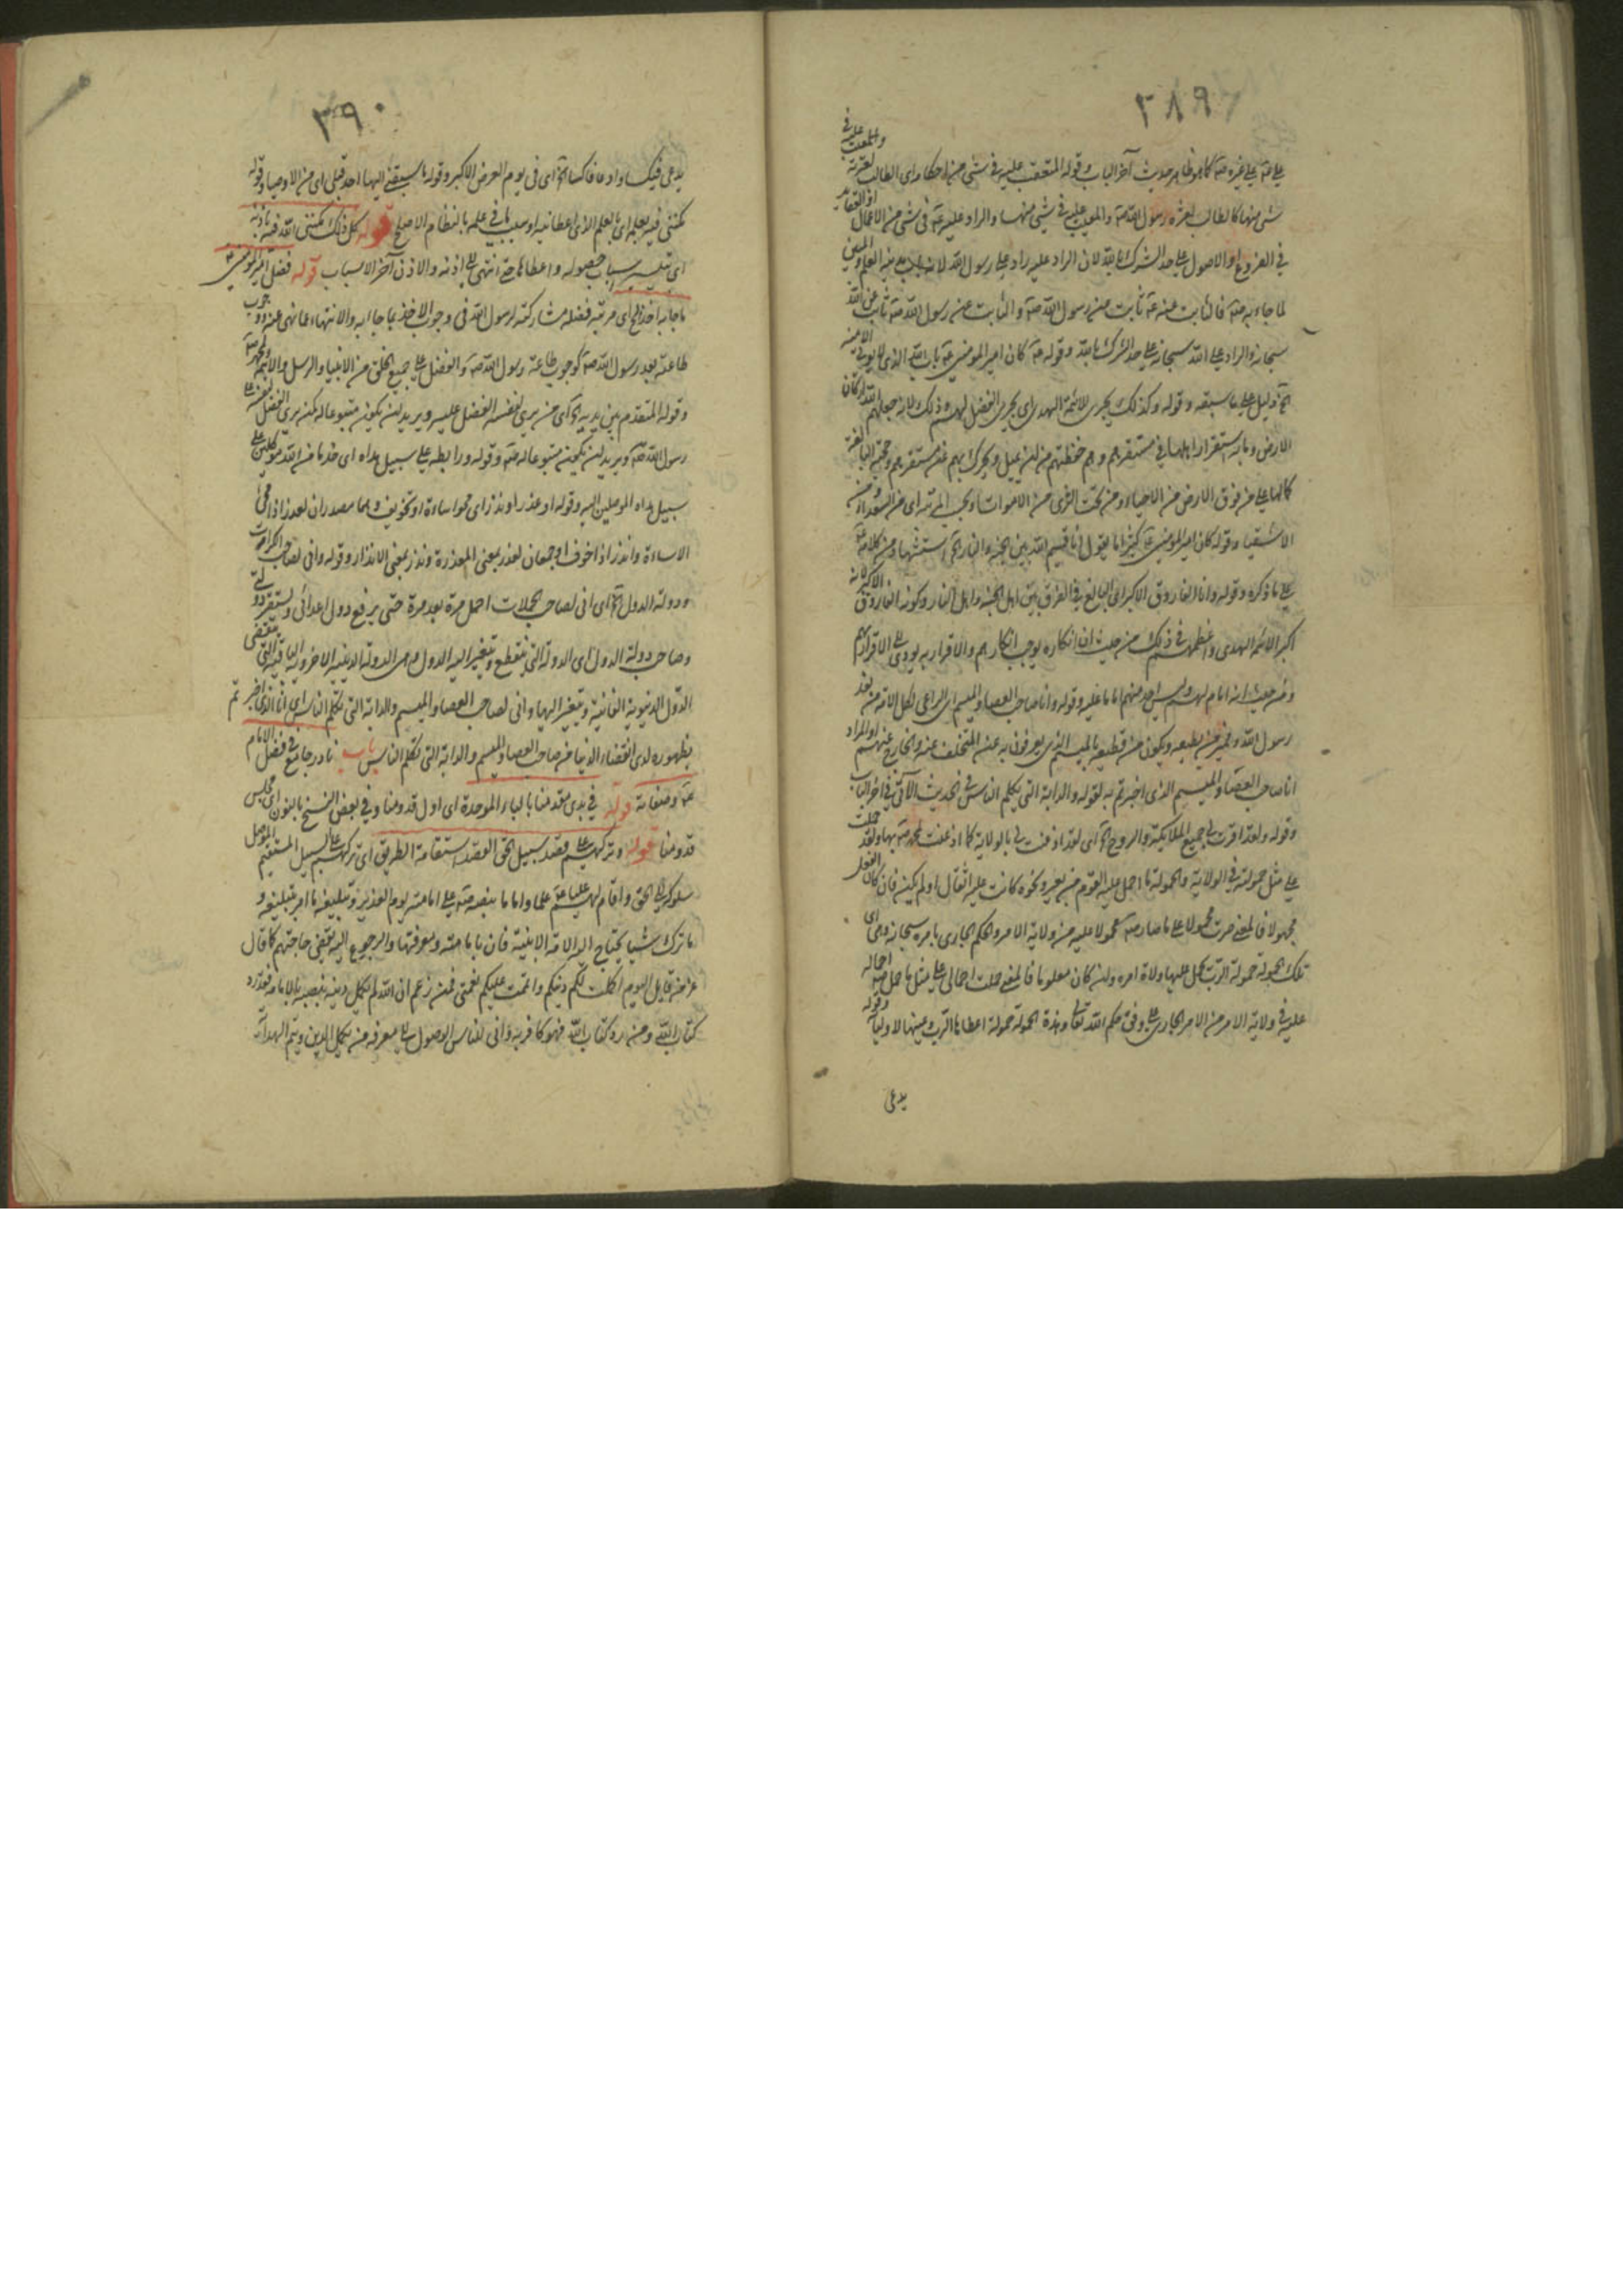 ٣٨٩
على غيره كما هو ظاهر حديث آخر الباب وقوله المتعقب عليه في شئ من احكامه اى الطالب لعثرته والمعيب عليه في
شئ منها كالطالب لعثرة رسول الله صه والمعيب عليه في شئ منها والراد عليه عه في شئ من الاعمال
في الفروع او الاصول على حد الشرك بالله لان الراد عليه راد على رسول الله لانه باب مدينة العلم والمبين
لما جاء به صه فالثابت عنه عه ثابت من رسول الله صه والثابت عن رسول الله صه ثابت عن الله
سبحانه والراد على الله سبحانه على حد الشرك بالله وقوله عه كان امير المؤمنين عه باب الله الذى لا يؤتى الا منه
الخ دليل على ما سبقه وقوله وكذلك يجرى لائمة الهدى اى يجرى الفضل لهم وذلك لانه جعلهم الله اركان
الارض وبه استقرار اهلها في مستقرهم وهم حفظتهم من ان يميل ويحرك بهم عن مستقرهم وحجته البالغة
كائنا على من فوق الارض من الاحياء ومن تحت الثرى من الاموات
الاشقياء وقوله كان امير المؤمنين عه كثيرا ما يقول انا قسيم الله بين الجنة والنار الخ استشهاد من كلامه عه
على ما ذكره وقوله وانا الفاروق الاكبر اى البالغ في الفرق بين اهل الجنة واهل النار وكونه الفاروق الاكبر لانه
اكبر الائمة الهدى واعظمهم في ذلك من حيث ان انكاره يوجب انكارهم والاقرار به يؤدى الى الاقرار بهم
ومن حيث انه امام لهم وليس احد منهم اماما عليه وقوله وانا صاحب العصا والميسم اى الراعى لكل الامة من بعد
رسول الله ومميز من يطيعه ويكون من قطيعه بالميسم الذى يعرفون به عن المتخلف عنه والخارج عنهم او المراد
انا صاحب العصا والميسم الذى اخبرتم به لقوله والدابة التى يكلم الناس في الحديث الآتى في آخر الباب
وقوله ولقد اقرت لى جميع الملائكة والروح الخ اى لقد اذعنت لى بالولاية كما اذعنت لمحمد صه بها ولقد حملت
على مثل حمولته في الولاية والحمولة ما احمل عليه القوم من بعير ونحوه كانت عليه اثقال او لم يكن فان كان الفعل
مجهولا فالمعنى صرت محمولا على ما صار صه محمولا عليه من ولاية الامر والحكم الجارى بامره سبحانه وهى اى
تلك الحمولة حمولة الرب يحمل عليها ولاة امره وان كان معلوما فالمعنى حملت احمالى على مثل ما حمل صه احماله
عليه في ولاية الامر من الامر الجارى على وفق حكم الله تعالى وهذه الحمولة حمولة اعطاها الرب وعينها لاوليائه وقوله
يدعى
٣٩٠
يدعى فيكسى وادعى فاكسى الخ اى في يوم العرض الاكبر وقوله ما سبقنى اليها احد قبلى اى من الاوصياء وقوله
مكننى فيه بعلمه اى بالعلم الذى اعطانيه او بسبب ما في علمه بالنظام الاصلح قوله كل ذلك مكننى الله فيه باذنه
اى بتيسير اسباب حصوله واعطائها حتى انتهى الى اذنه والاذن آخر الاسباب قوله فضل امير المؤمنين
ما جاء به اخذ الخ اى مرتبة فضله مشاركته لرسول الله في وجوب الاخذ بما جاء به والانتهاء عما نهى عنه ووجوب
طاعته بعد رسول الله صه كوجوب طاعة رسول الله صه والفضل على جميع الخلق من الانبياء والرسل والائمة لمحمد صه
وقوله المتقدم بين يديه الخ اى من يرى لنفسه الفضل عليه ويريد ان يكون متبوعا له كمن يرى الفضل لنفسه على
رسول الله صه ويريد ان يكون متبوعا له صه وقوله ورابطه على سبيل هداه اى خدما من الله موكلين على
سبيل هداه الموصلين اليه وقوله او عذر او نذر اى محو اساءة او تخويف وهما مصدران لعذر اذا محى
الاساءة وانذر اذا خوف او جمعان لعذر بمعنى المعذرة ونذر بمعنى الانذار وقوله وانى لصاحب الكرات
ودولة الدول الخ اى انى لصاحب الحملات احمل مرة بعد مرة حتى يرفع دول اعدائى ويستقر دولتى
وصاحب دولة الدول اى الدولة التى ينقطع وينتهى اليه الدول وهى الدولة الدينية الاخروية الباقية التى ينقضى
الدول الدنيوية الفانية وينتهى اليها وانى لصاحب العصا والميسم والدابة التى تكلم الناس اى انا الذى اخبرتم
بظهوره لدى انقضاء الدنيا من صاحب العصا والميسم والدابة التى تكلم الناس باب نادر جامع في فضل الامام
عه وصفاته قوله في بدى مقدمنا بالباء الموحدة اى اول قدومنا وفي بعض النسخ بالنون اى مجلس
قدومنا قوله وتركهم على قصد سبيل الحق القصد استقامة الطريق اى تركهم على السبيل المستقيم الموصل
سلوكه الى الحق واقام لهم عليا عه علما واماما بنصه صه على امامته يوم الغدير وتبليغه ما امر بتبليغه و
ما ترك شيئا يحتاج اليه الامة الا بينه فان بامامته ومعرفتها والرجوع اليه يقضى حاجتهم كما قال
عز من قائل اليوم اكملت لكم دينكم واتممت عليكم نعمتى فمن زعم ان الله لم يكمل دينه بنصبه بالامامة فقد رد
كتاب الله ومن رد كتاب الله فهو كافر به وانى للناس الوصول الى معرفة من يكمل الدين ويتم الهداية